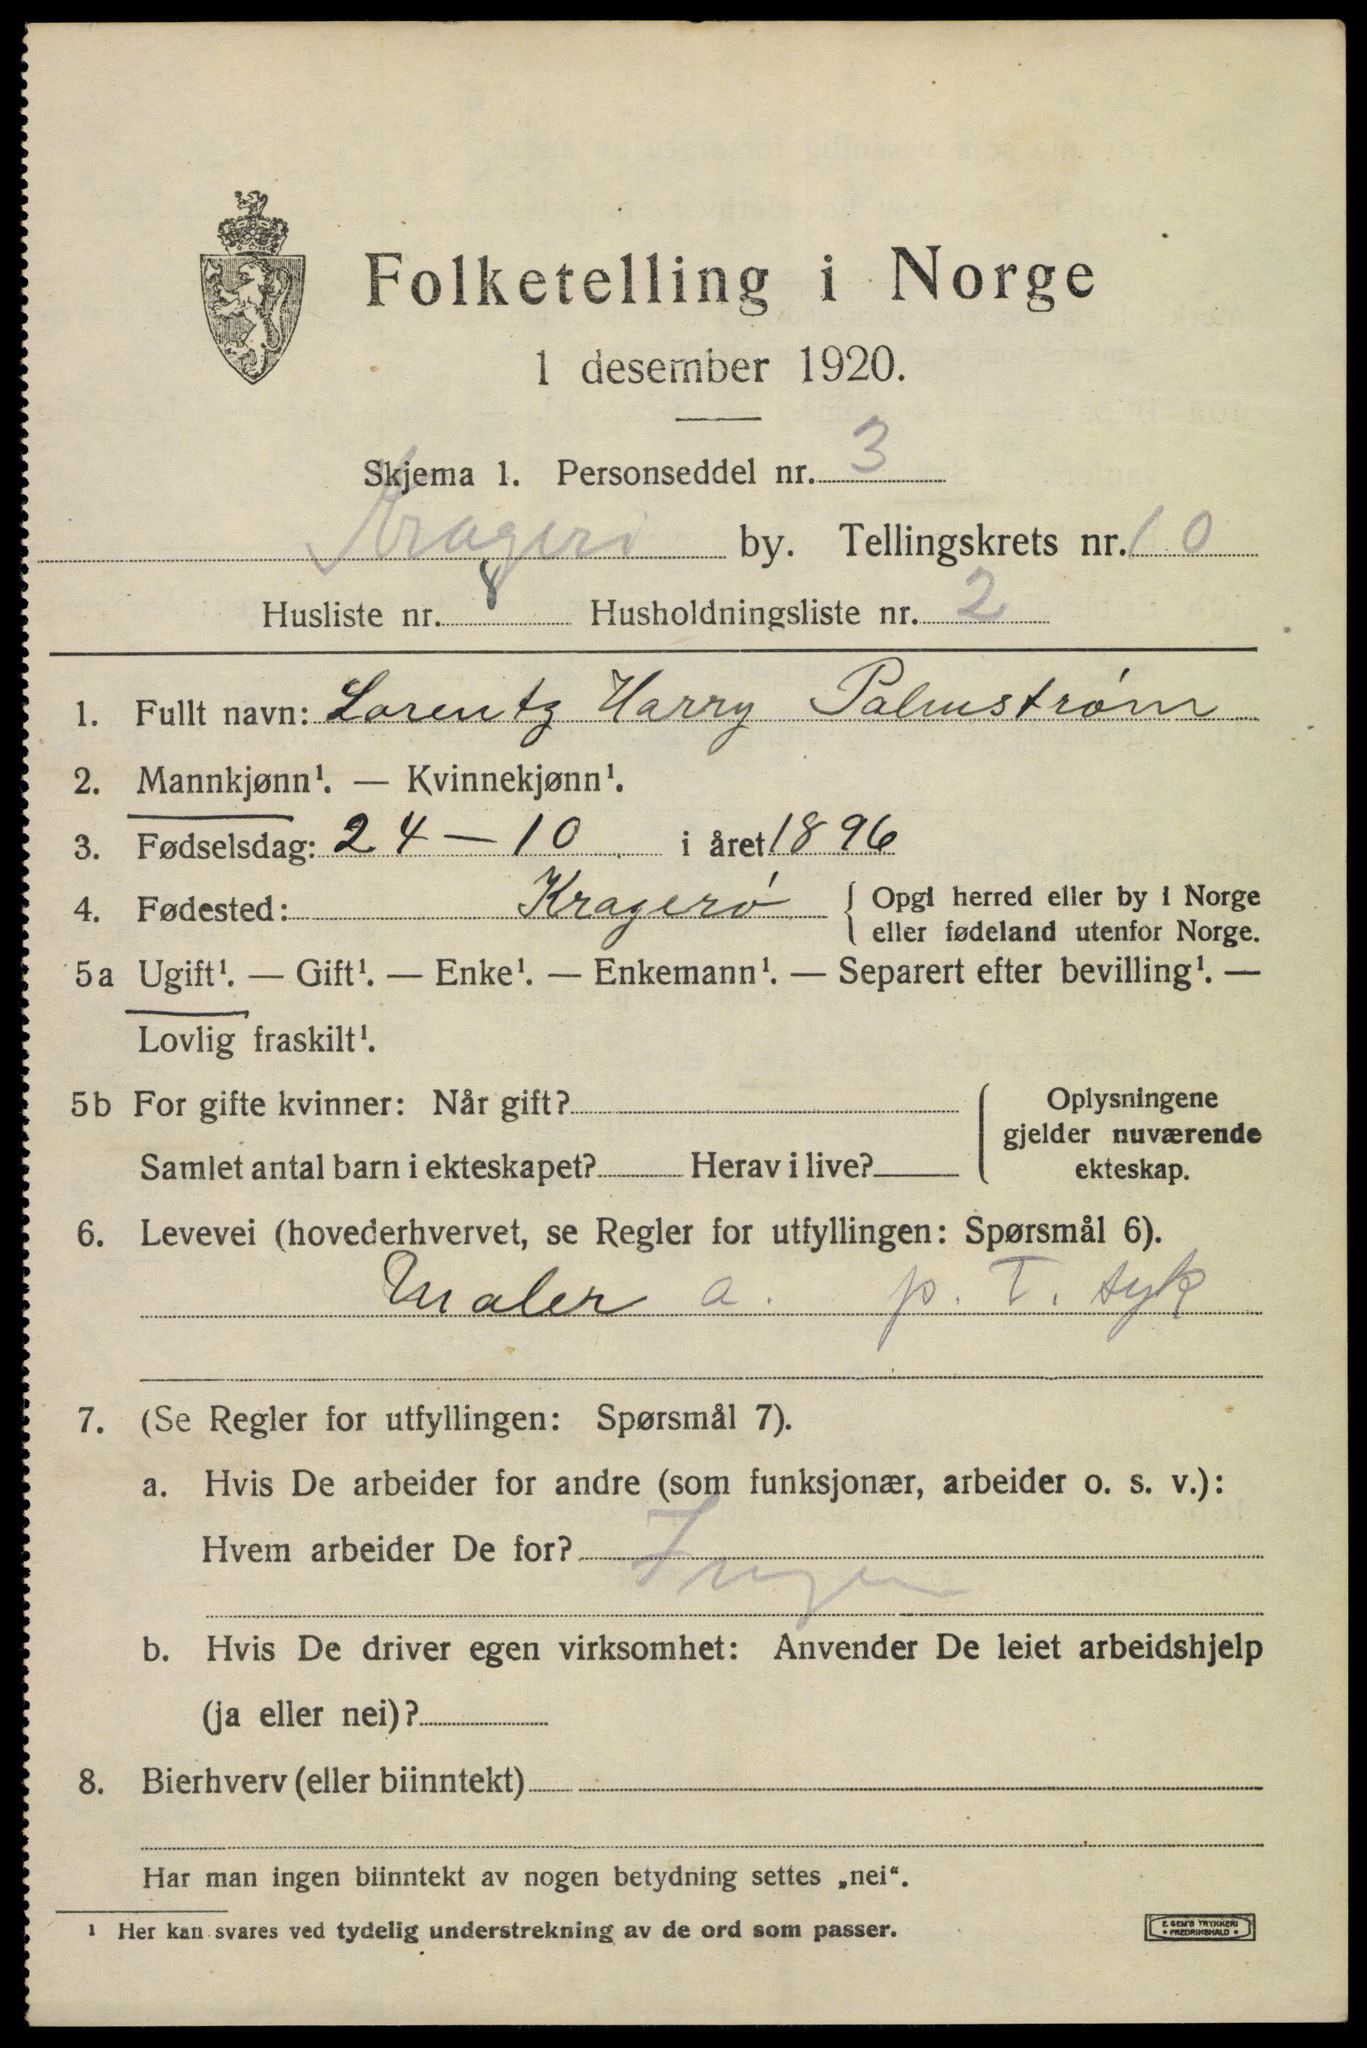 Folketelling i Norge
1 desember 1920.
Skjema 1. Personseddel nr. 3
Kragerø by. Tellingskrets nr. 10
Husliste nr. 8 Husholdningsliste nr. 2
1. Fullt navn: Lorentz Harry Palmstrøm
2. Mannkjønn¹. — Kvinnekjønn¹.
3. Fødselsdag: 24 — 10 i året 1896
4. Fødested: Kragerø { Opgi herred eller by i Norge
eller fødeland utenfor Norge.
5a Ugift¹. — Gift¹. — Enke¹. — Enkemann¹. — Separert efter bevilling¹. —
Lovlig fraskilt¹.
5b For gifte kvinner: Når gift? { Oplysningene
gjelder nuværende
Samlet antal barn i ekteskapet? Herav i live? ekteskap.
6. Levevei (hovederhvervet, se Regler for utfyllingen: Spørsmål 6).
Maler a. p. T. syk
7. (Se Regler for utfyllingen: Spørsmål 7).
a. Hvis De arbeider for andre (som funksjonær, arbeider o. s. v.):
Hvem arbeider De for? Ingen
b. Hvis De driver egen virksomhet: Anvender De leiet arbeidshjelp
(ja eller nei)?
8. Bierhverv (eller biinntekt)
Har man ingen biinntekt av nogen betydning settes „nei“.
¹ Her kan svares ved tydelig understrekning av de ord som passer.
E. SEM'S TRYKKERI
• FREDRIKSHALD •